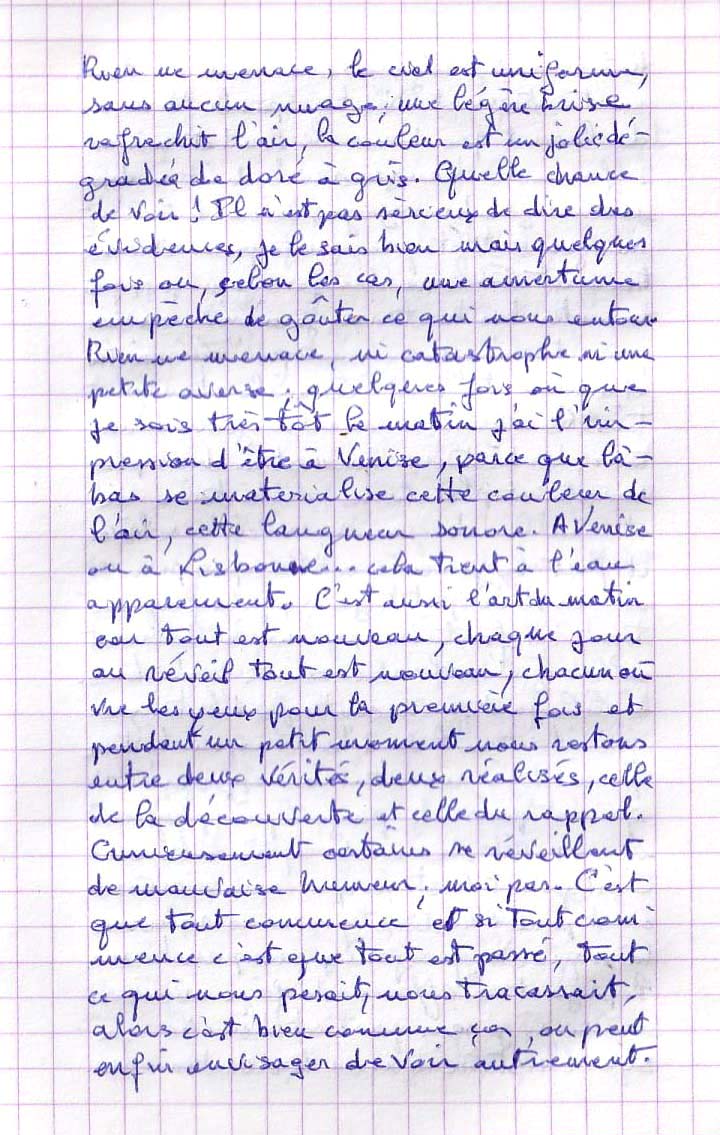 Rien ne menace, le ciel est uniforme,
sans aucun nuage; une légère brise
rafrechit l'air, la couleur est un joli dé-
gradéa de doré à gris. Quelle chance
de voir ! Il n'est pas sérieux de dire des
évidences, je le sais bien mais quelques
fois ou, selon les cas, une amertume
empêche de goûter ce qui nous entour
Rien ne menace, ni catastrophe ni une
petite averse; quelques fois ou que
je sois très tôt le matin j'ai l'im-
pression d'être à Venise, parce que là-
bas se materialise cette couleur de
l'air, cette langueur sonore. A Venise
ou à Lisbonne... cela tient à l'eau
apparement. C'est aussi l'art du matin
car tout est nouveau, chaque jour
au réveil tout est nouveau, chacun ou
vre les yeux pour la première fois et
pendant un petit moment nous restons
entre deux vérités, deux réalisés, celle
de la découverte et celle du rappel.
Curieusement certains se réveillent
de mauvaise humeur; moi pas. C'est
que tout commence et si tout com
mence c'est que tout est passé, tout
ce qui nous pesait, nous tracassait,
alors c'est bien comme ça, on peut
enfin envisager de voir autrement.